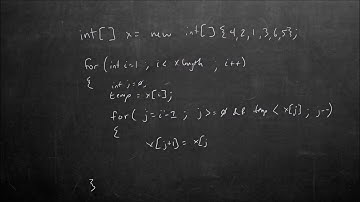 int[] x= new int[] {4,2,1,3,6,5};
for (int i=1 ; i< x.length ; i++)
{ int j=0;
temp = x[i];
for( j=i-1 ; j>=0 && temp < x[j] ; j--)
{
x[j+1] = x[j
}